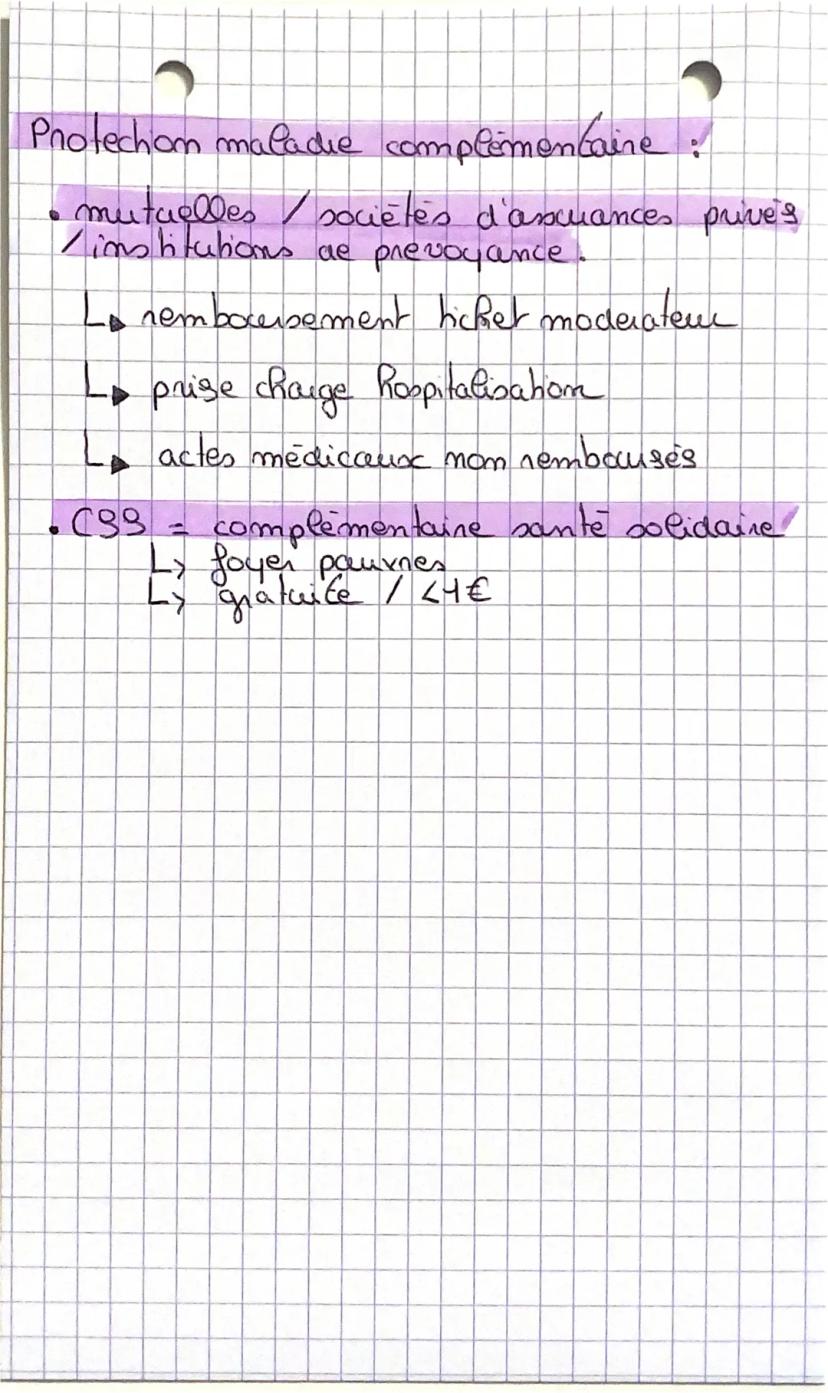 Protection maladie complémentaire :
• mutuelles / sociétés d'assurances privés
/ institutions de prevoyance.
↳ remboursement ticket moderateur
↳ prise charge hospitalisation
↳ actes médicaux non remboursés
• CSS = complémentaire santé solidaire
↳ foyer pauvres
↳ gratuite / <1€